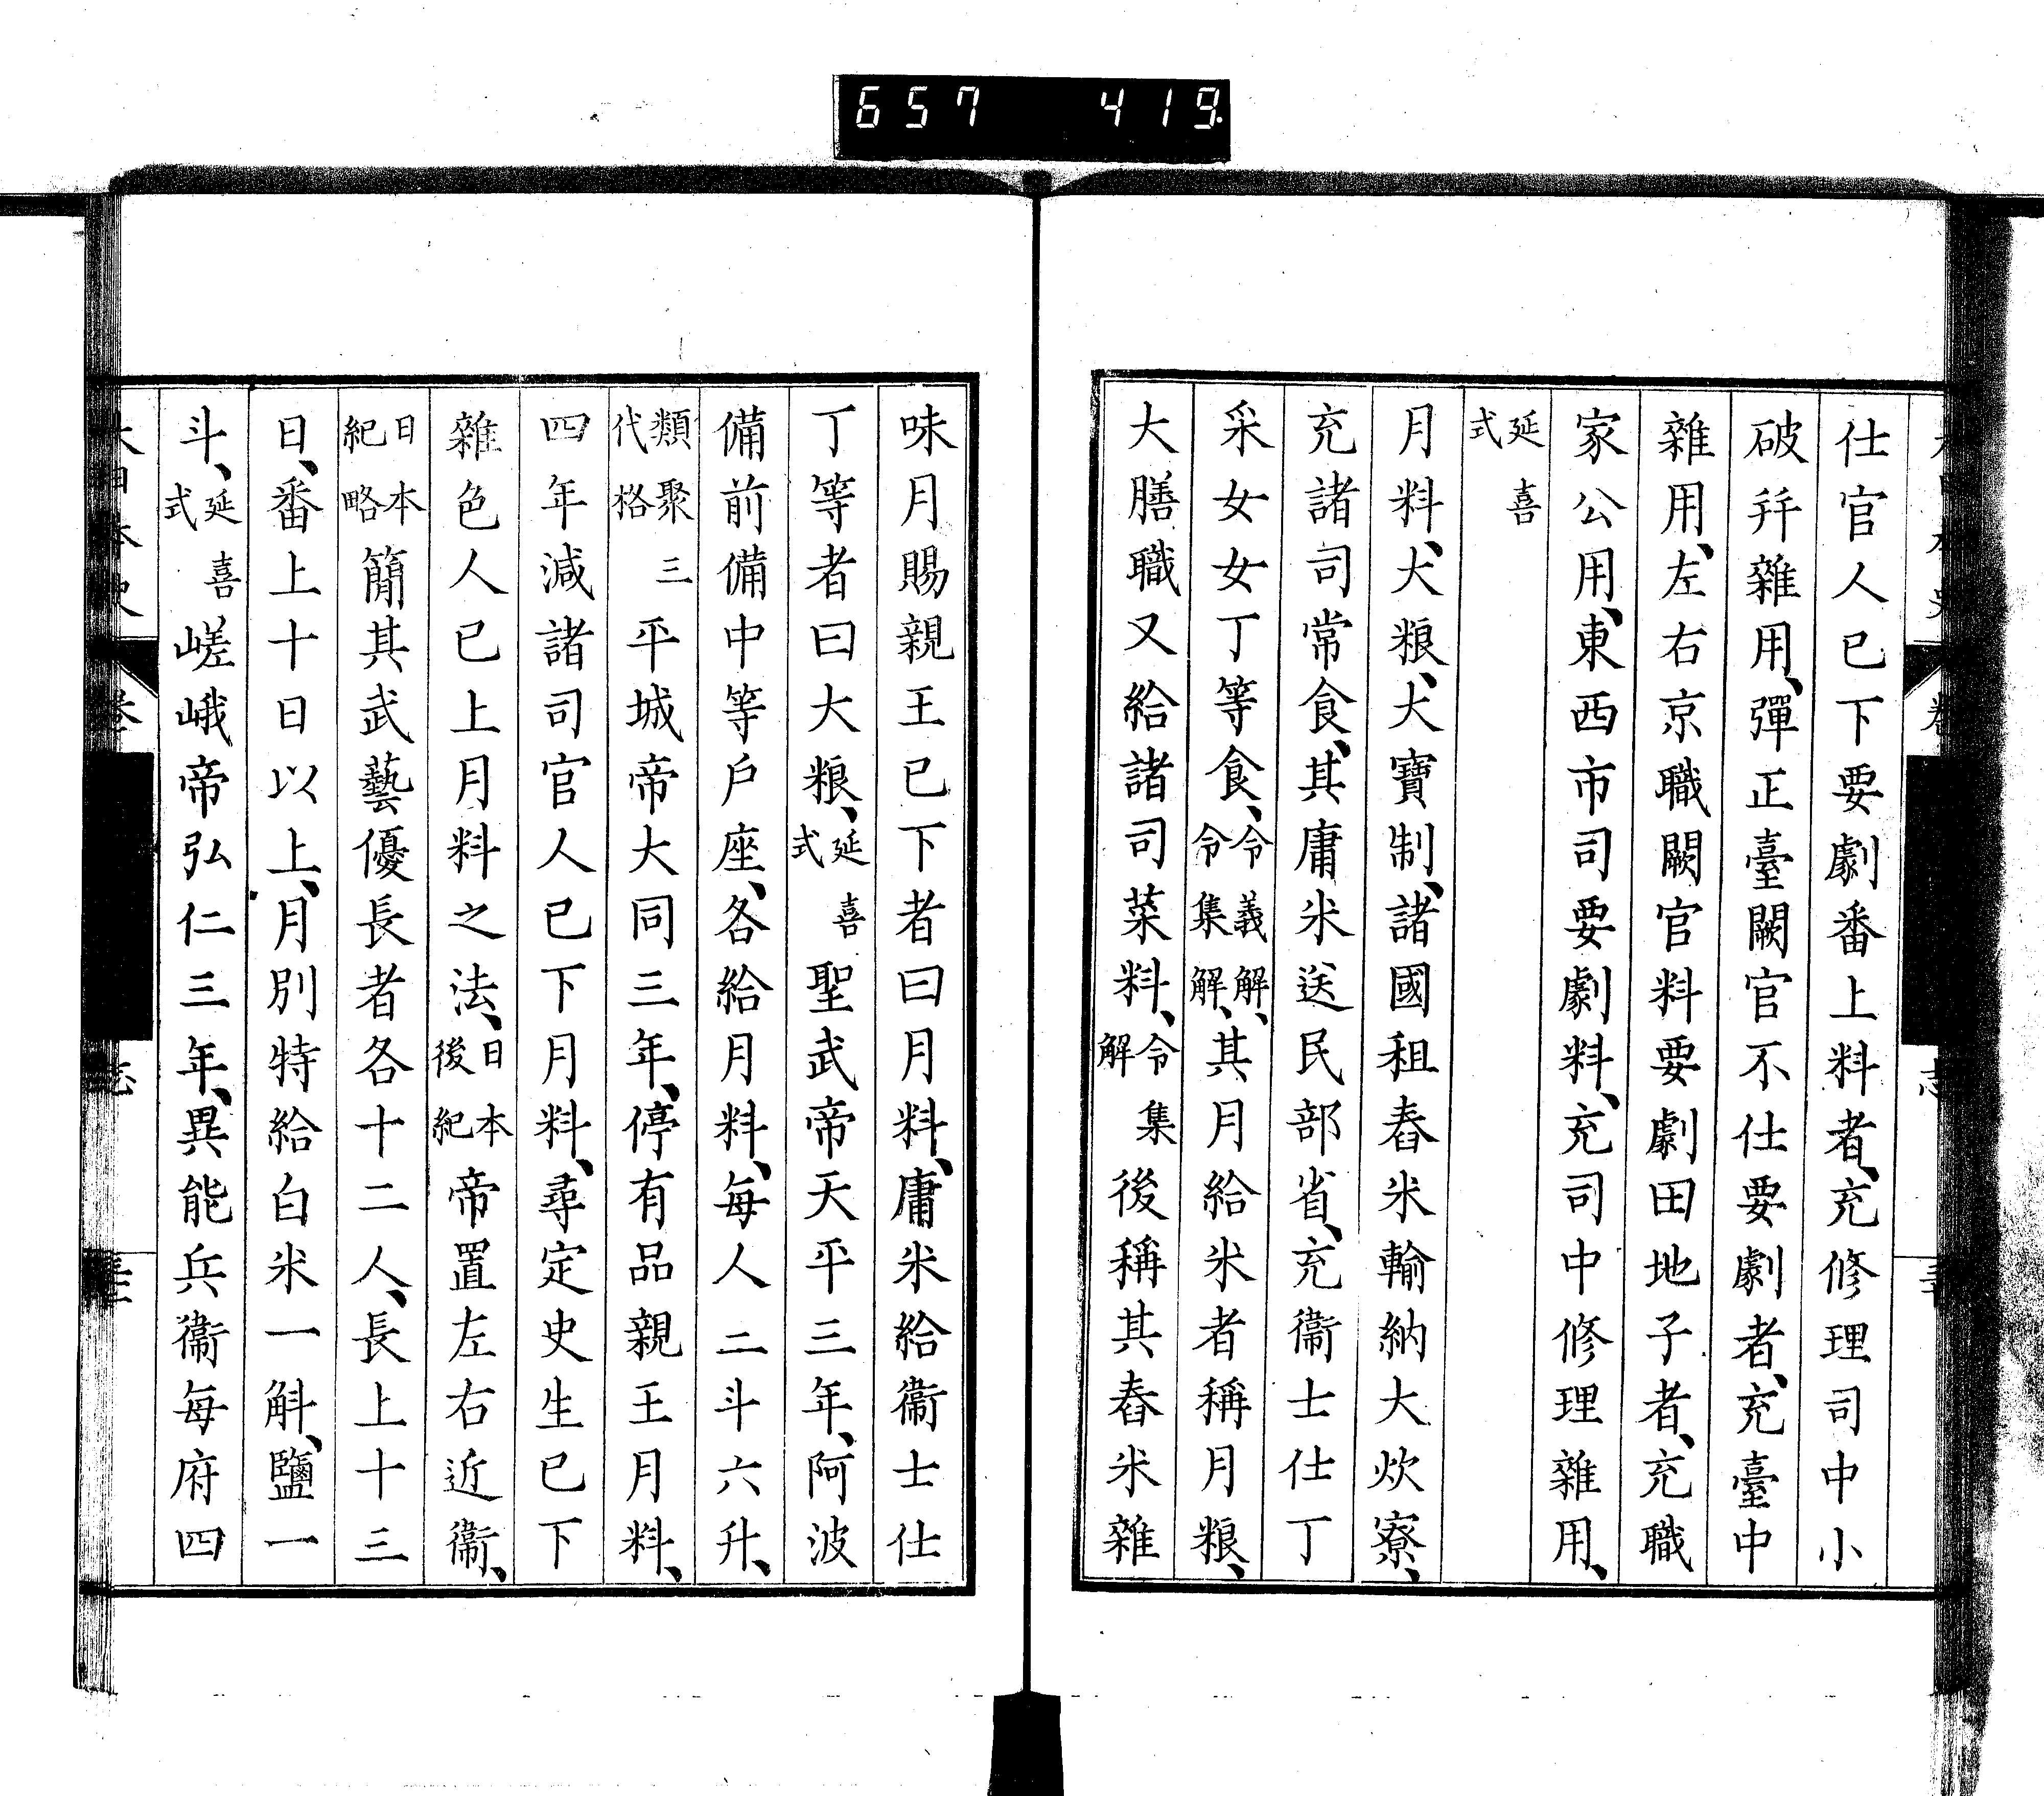 657 419
仕官人已下要劇番上料者、充修理司中小
破幷雜用、彈正臺闕官不仕要劇者、充臺中
雜用、左右京職闕官料要劇田地子者、充職
家公用、東西市司要劇料、充司中修理雜用、
延喜式
月料、大粮、大寶制、諸國租舂米輸納大炊寮、
充諸司常食、其庸米送民部省、充衞士仕丁
采女女丁等食、令義解、令集解、其月給米者稱月粮、
大膳職又給諸司菜料、令集解後稱其舂米雜
味月賜親王已下者曰月料、庸米給衞士仕
丁等者曰大粮、延喜式聖武帝天平三年、阿波
備前備中等戶座、各給月料、每人二斗六升、
類聚三代格平城帝大同三年、停有品親王月料、
四年減諸司官人已下月料、尋定史生已下
雜色人已上月料之法、日本後紀帝置左右近衞、
日本紀略簡其武藝優長者各十二人、長上十三
日、番上十日以上、月別特給白米一斛、鹽一
斗、延喜式嵯峨帝弘仁三年、異能兵衞每府四